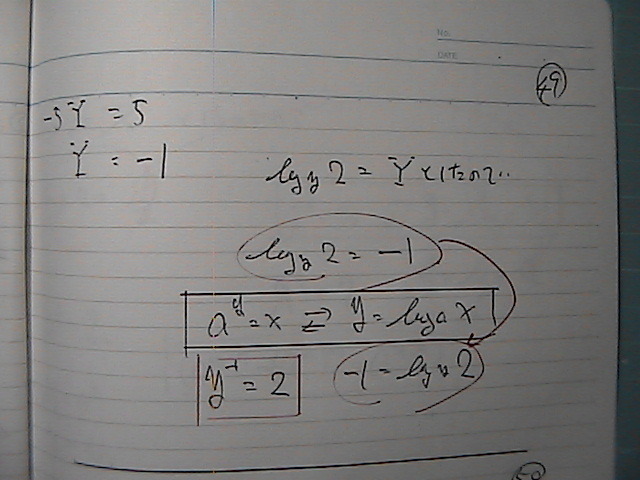 NO.
DATE
49
-5Y = 5
Y = -1
log_y 2 = Y とけたので..
log_y 2 = -1
a^y = x ⇄ y = log_a x
y^-1 = 2
-1 = log_y 2
50